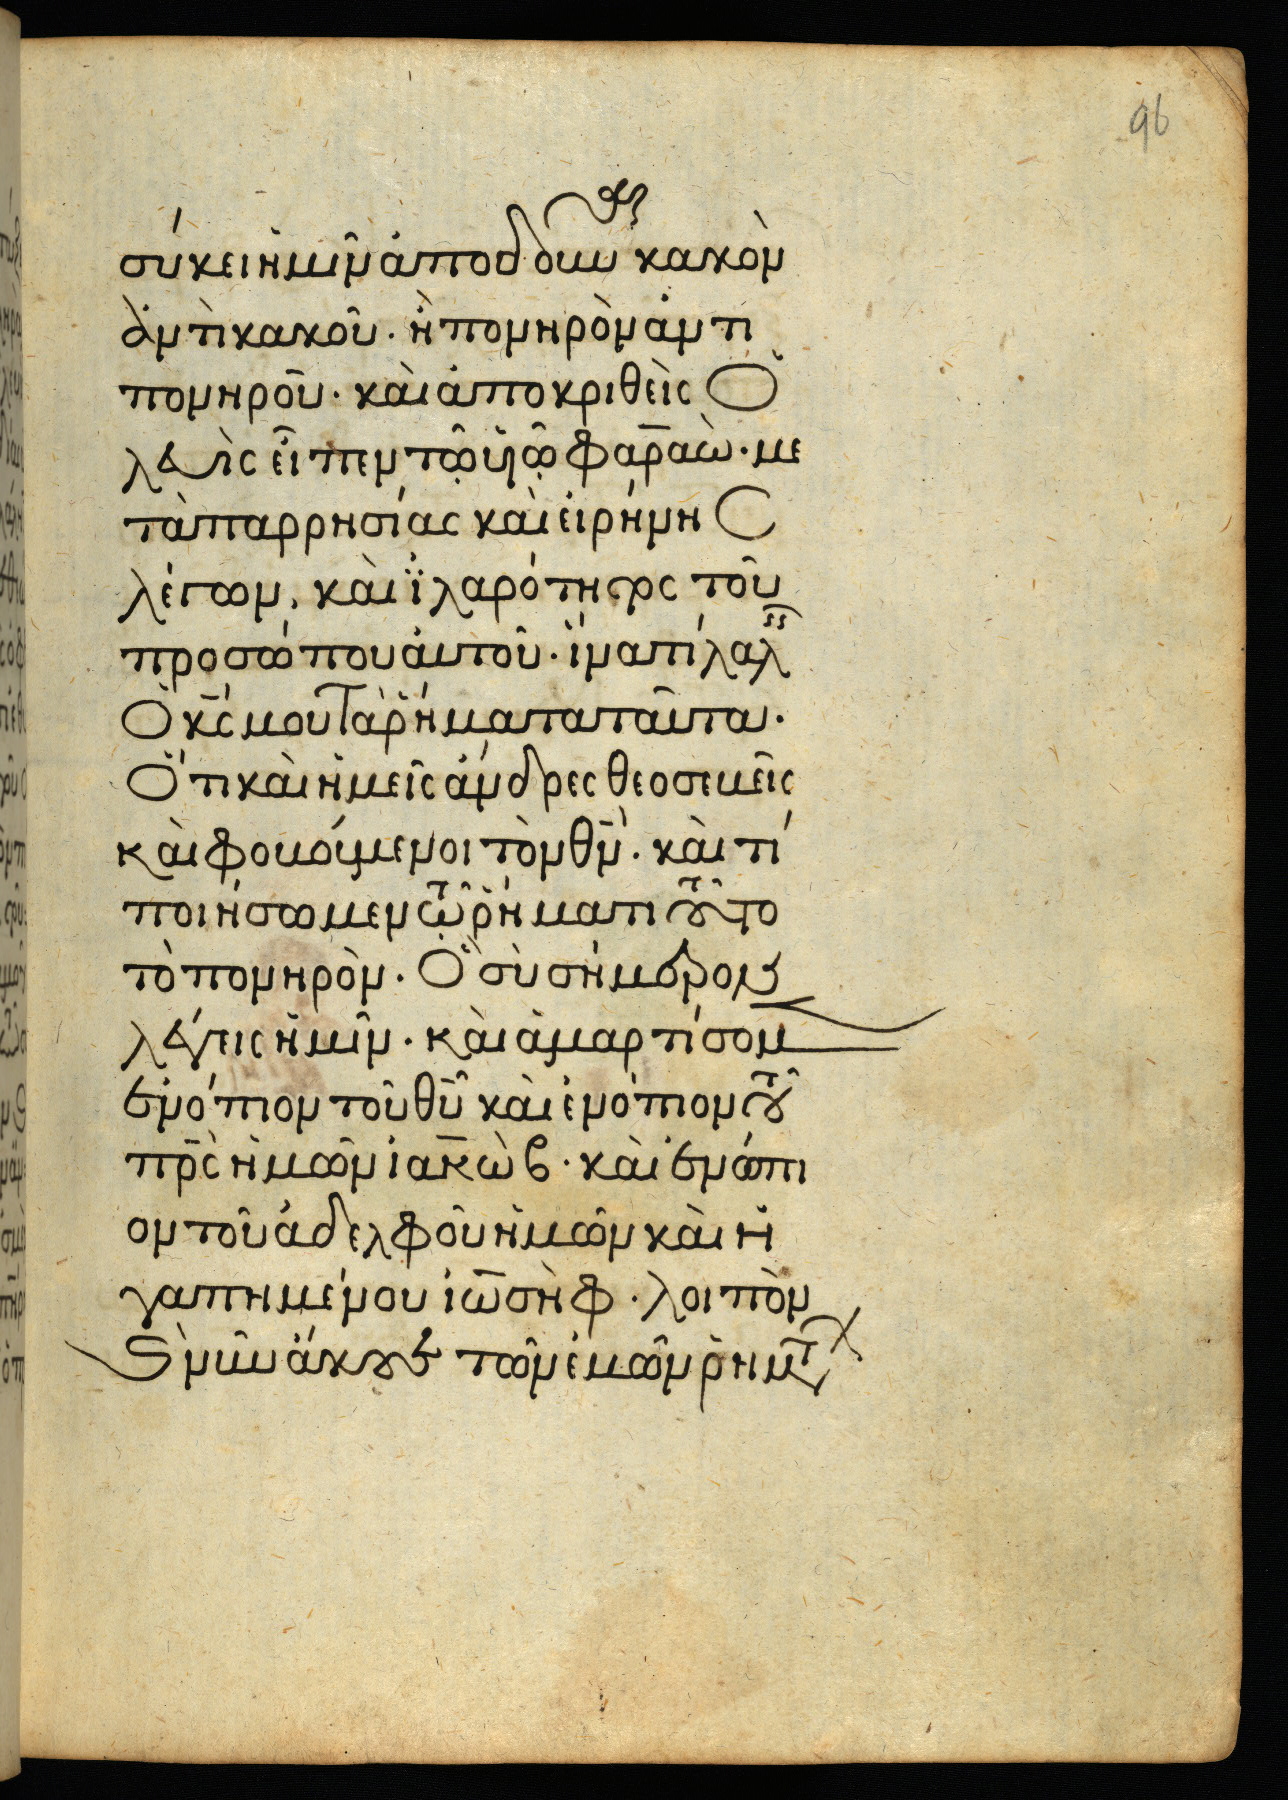 96
σύκει ἡμῖν ἀποδδοῦναι κακὸν
ἀντὶ κακοῦ. ἢ πονηρὸν ἀντὶ
πονηροῦ. καὶ ἀποκριθεὶς ὁ
λευὶς εἶπεν τῷ υἱῷ φαραώ. με
τὰ παρρησίας καὶ εἰρήνης
λέγων, καὶ ἱλαρότητος τοῦ
προσώπου αὐτοῦ. ἵνα τί λαλ
ὁ κ̅ς́ μου τὰ ῥήματα ταῦτα.
Ὅτι καὶ ἡμεῖς ἄνδρες θεοσεβεῖς
καὶ φοβούμενοι τὸν θ̅ν̅. καὶ τί
ποιήσωμεν τῷ ῥήματι τοῦτο
τὸ πονηρὸν. Ὃ σὺ σήμερον
λέγεις ἡμῖν. καὶ ἁμαρτίσομεν
ἐνόπιον τοῦ θ̅υ̅ καὶ ἐνόπιον τοῦ
π̅ρ̅ς̅ ἡμῶν ἰακώβ. καὶ ἐνώπι
ον τοῦ ἀδελφοῦ ἡμῶν καὶ ἠ
γαπημένου ἰωσὴφ. λοιπὸν
νῦν ἄκουε τῶν ἐμῶν ῥημάτων